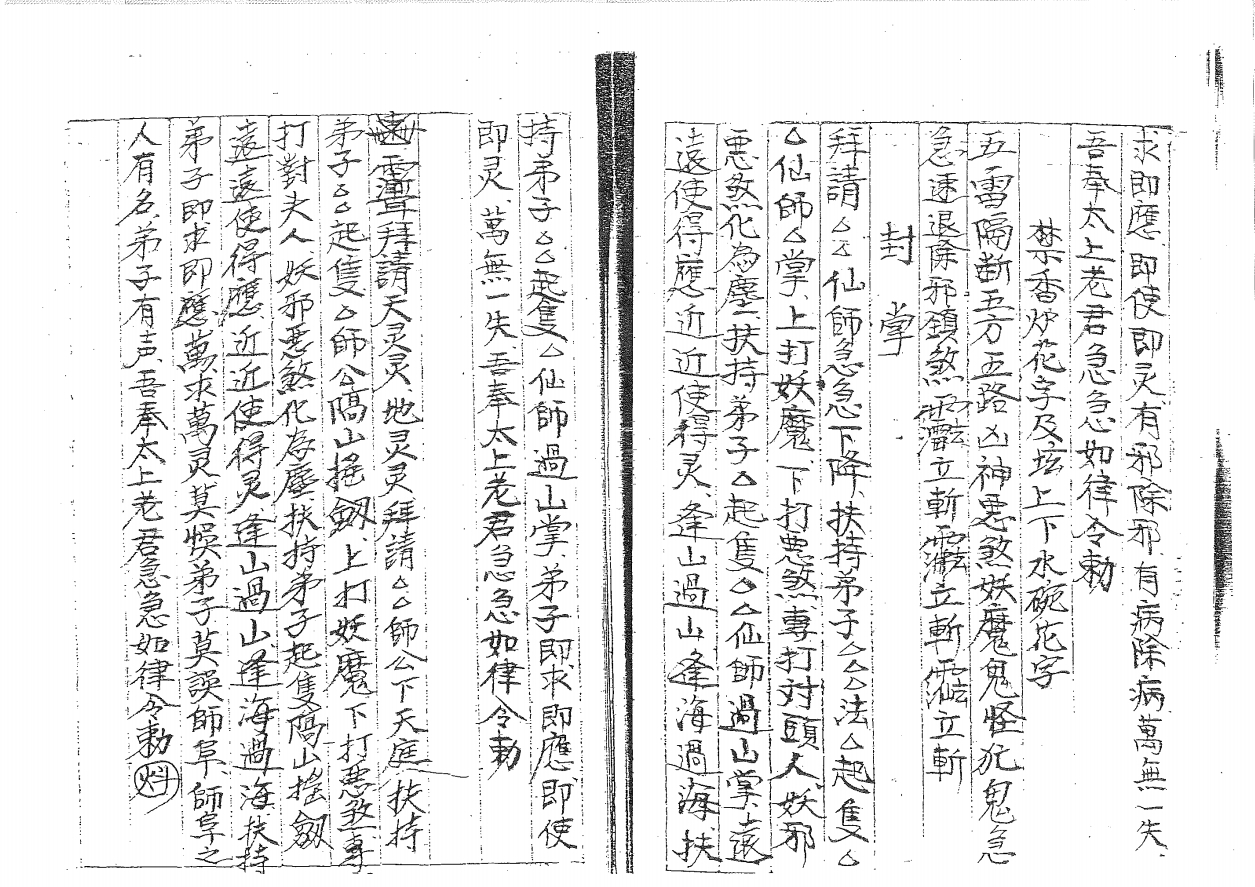 求即應即使即灵有邪除邪有病除病萬無一失
吾奉太上老君急急如律令勅
禁香炉花字及坛上下水碗花字
五雷隔断五方五路凶神悪煞妖魔鬼怪犯鬼急
急速退除邪鎮煞立斬立斬立斬
封掌
拜請△△仙師急急下降、扶持弟子△△△法△起隻△
△仙師△掌、上打妖魔、下打悪煞、專打対頭人妖邪
悪煞化為塵、扶持弟子△起隻△△仙師過山掌、遠
遠使得應近近使得灵、逢山過山逢海過海、扶
持弟子△△起隻△仙師過山掌、弟子即求即應即使
即灵、萬無一失吾奉太上老君急急如律令勅
拜請天灵灵、地灵灵拜請△△師公下天庭、扶持
弟子△△起隻△師公隔山搖劔、上打妖魔下打悪煞專
打對夫人妖邪悪煞化為塵扶持弟子起隻隔山搖劔
遠遠使得應近近使得灵逢山過山逢海過海扶持
弟子即求即應萬求萬灵莫悞弟子莫誤師阜、師阜之
人有名弟子有声、吾奉太上老君急急如律令勅